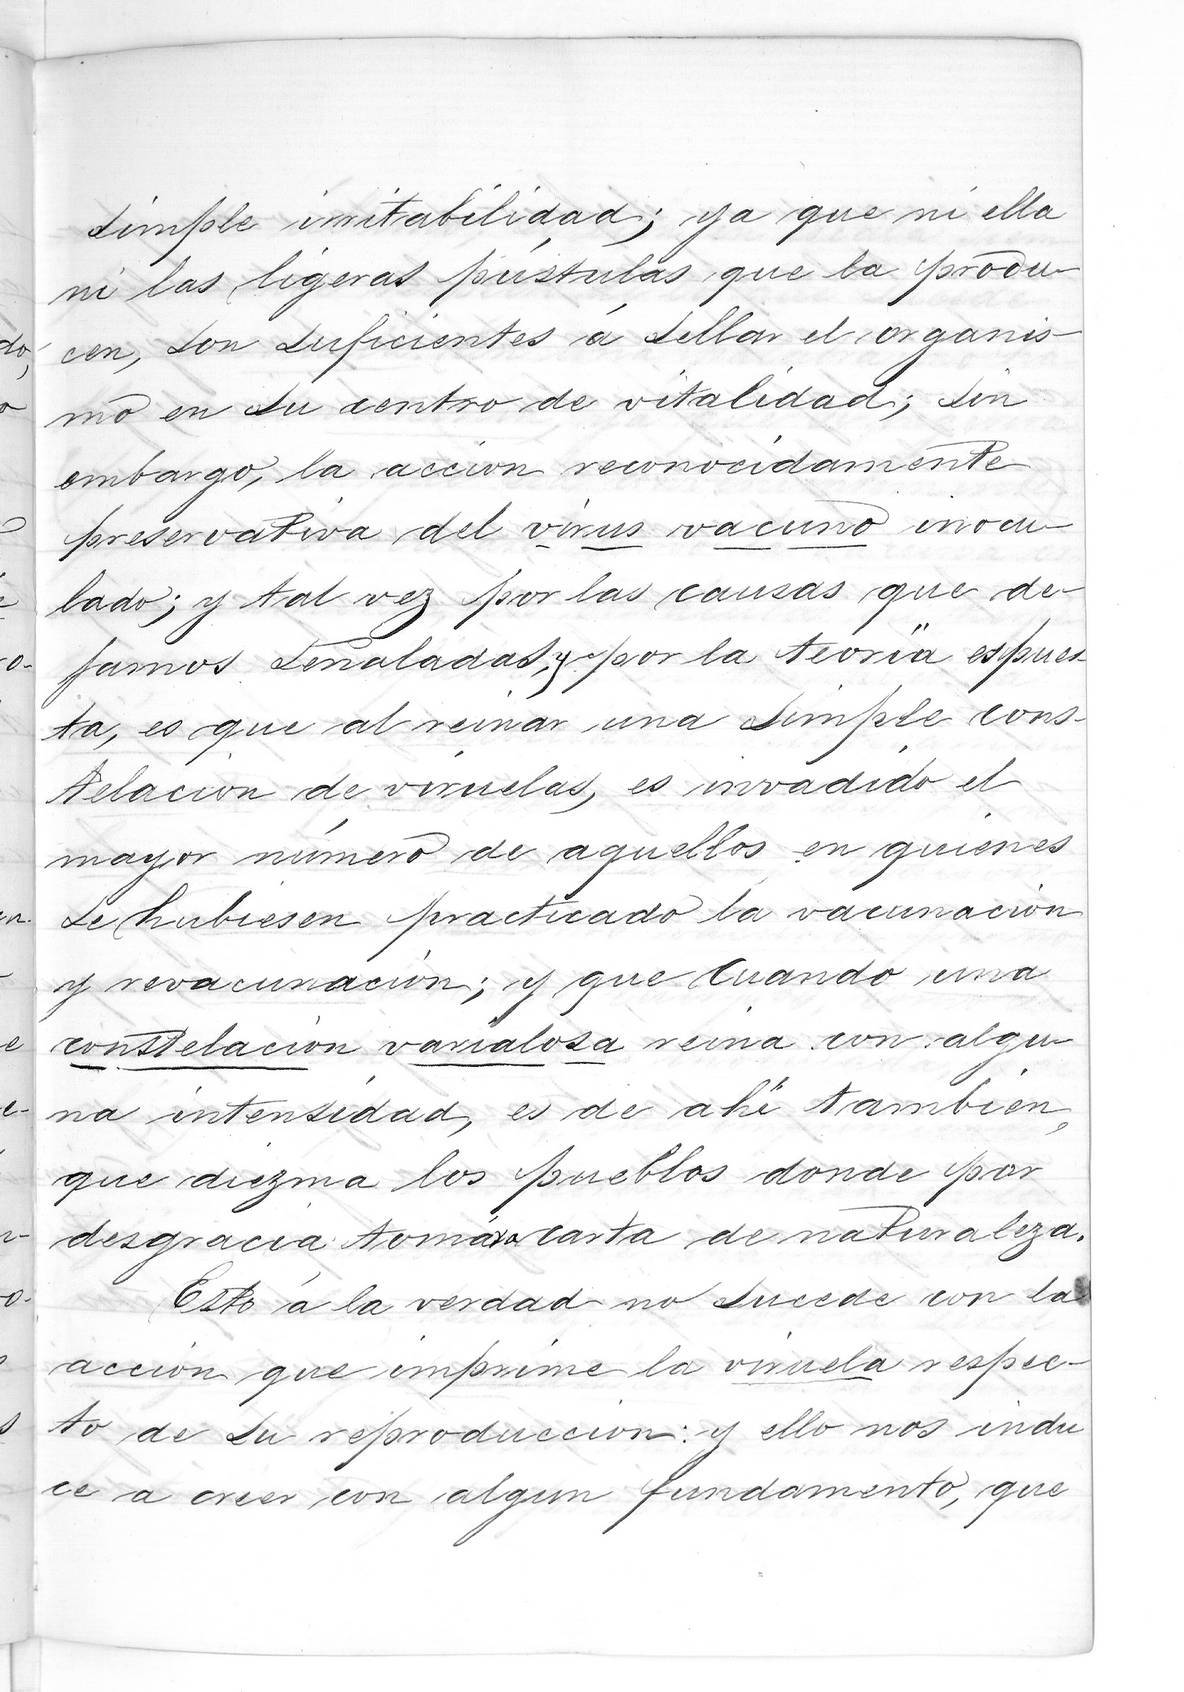 simple irritabilidad; ya que ni ella
ni las ligeras pústulas que la produ-
cen, son suficientes á sellar el organis-
mo en su centro de vitalidad; sin
embargo, la accion reconocidamente
preservativa del virus vacuno inocu-
lado; y tal vez por las causas que de-
jamos señaladas, y por la teoría espues-
ta, es que al reinar una simple cons-
telacion de viruelas, es invadido el
mayor número de aquellos en quienes
se hubiesen practicado la vacunacion
y revacunación; y que cuando una
constelacion varialosa reina con algu-
na intensidad, es de ahí tambien,
que diezma los pueblos donde por
desgracia toma carta de naturaleza.
Esto á la verdad no sucede con la
acción que imprime la viruela respec-
to de su reproduccion: y ello nos indu
ce a creer con algun fundamento, que